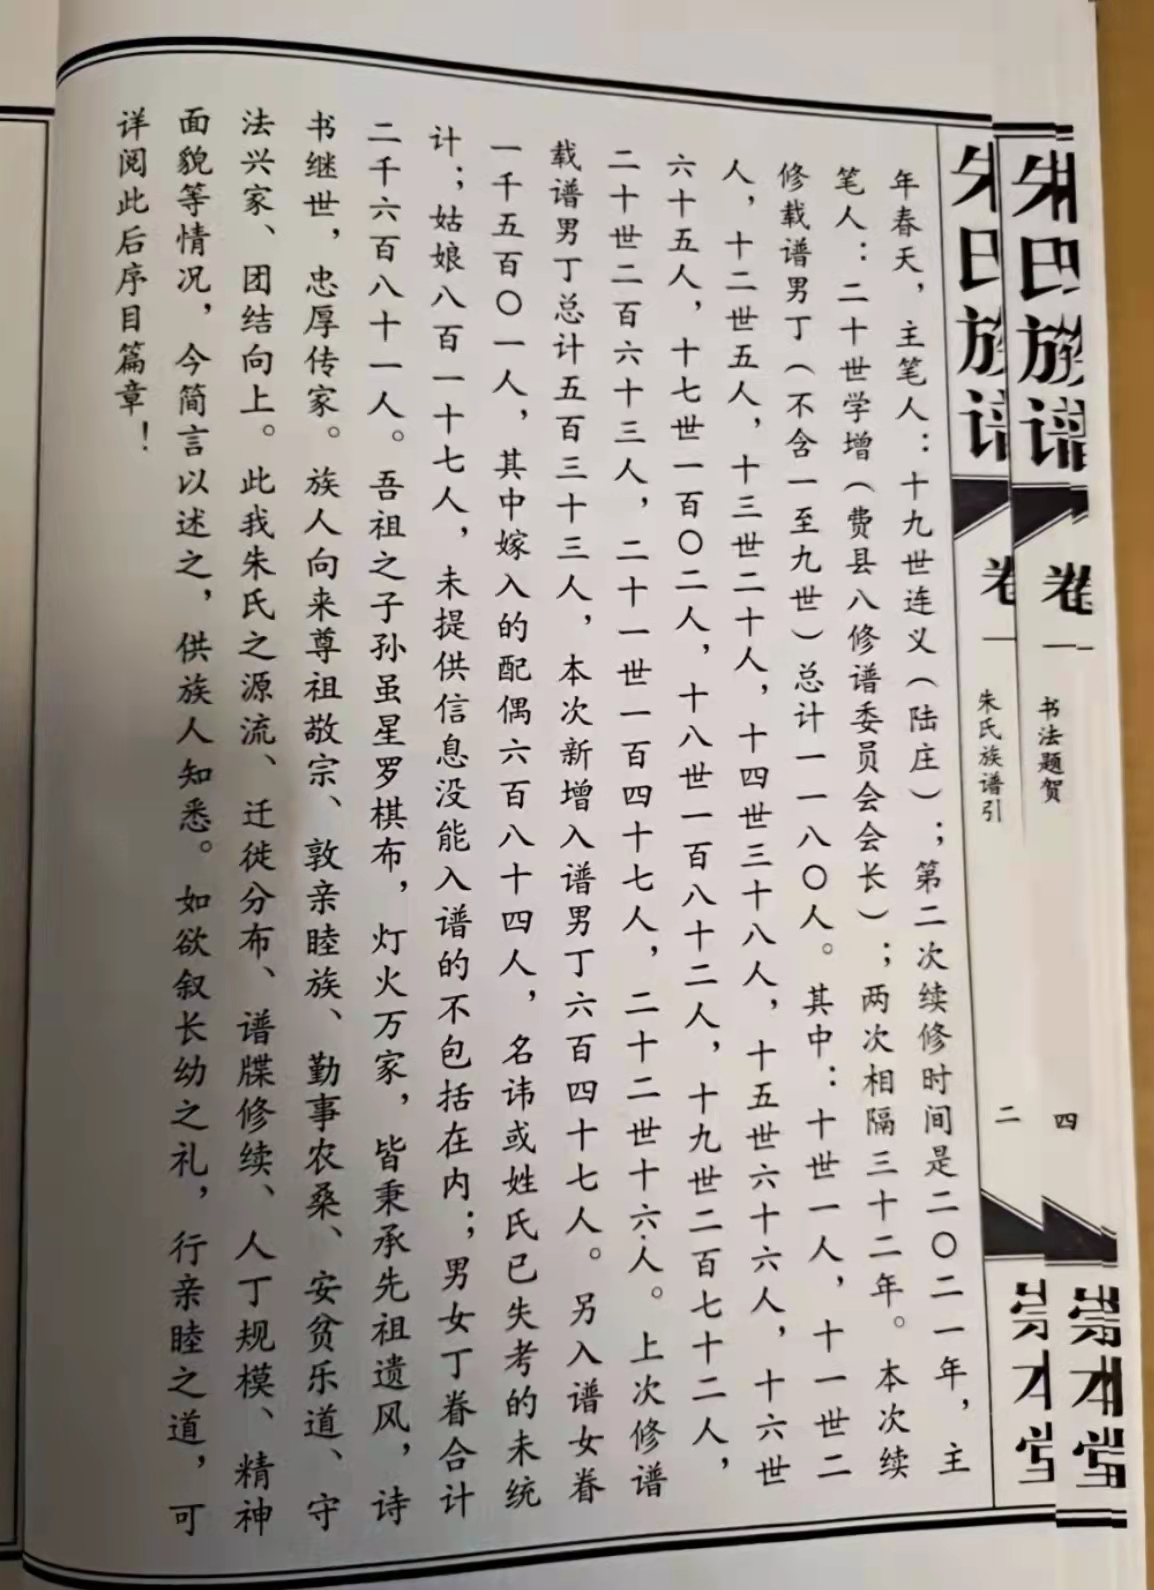 年春天，主笔人：十九世连义（陆庄）；第二次续修时间是二〇二一年，主
笔人：二十世学增（费县八修谱委员会会长）；两次相隔三十二年。本次续
修载谱男丁（不含一至九世）总计一一八〇人。其中：十世一人，十一世二
人，十二世五人，十三世二十人，十四世三十八人，十五世六十六人，十六世
六十五人，十七世一百〇二人，十八世一百八十二人，十九世二百七十二人，
二十世二百六十三人，二十一世一百四十七人，二十二世十六人。上次修谱
载谱男丁总计五百三十三人，本次新增入谱男丁六百四十七人。另入谱女眷
一千五百〇一人，其中嫁入的配偶六百八十四人，名讳或姓氏已失考的未统
计；姑娘八百一十七人，未提供信息没能入谱的不包括在内；男女丁眷合计
二千六百八十一人。吾祖之子孙虽星罗棋布，灯火万家，皆秉承先祖遗风，诗
书继世，忠厚传家。族人向来尊祖敬宗、敦亲睦族、勤事农桑、安贫乐道、守
法兴家、团结向上。此我朱氏之源流、迁徙分布、谱牒修续、人丁规模、精神
面貌等情况，今简言以述之，供族人知悉。如欲叙长幼之礼，行亲睦之道，可
详阅此后序目篇章！
朱氏族谱
卷一
朱氏族谱引
二
崇本堂
朱氏族谱
卷一
书法题贺
四
崇本堂